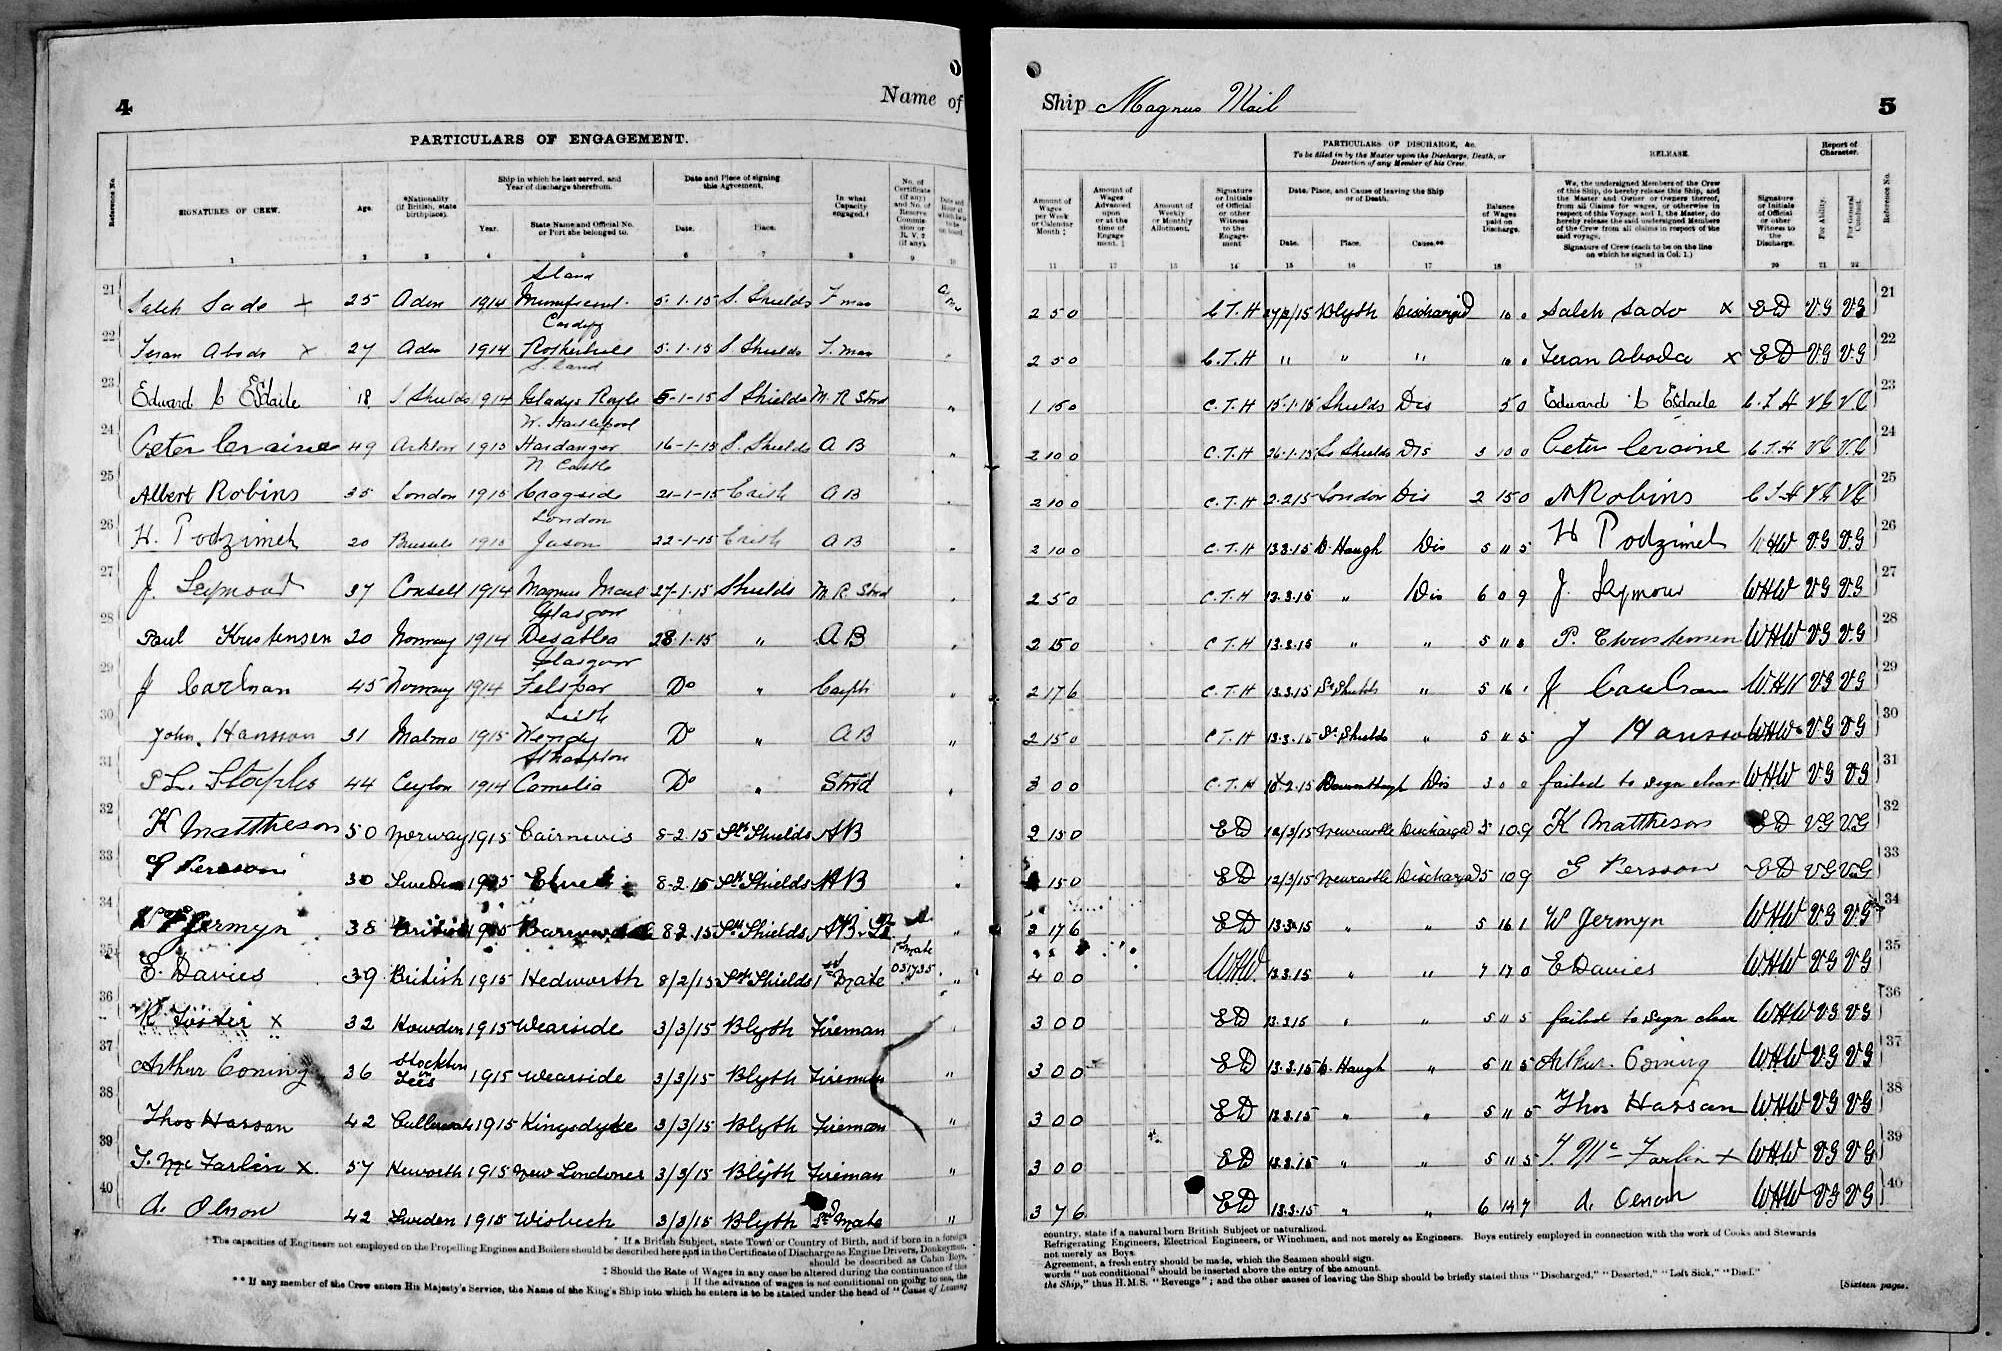 4
Name of
PARTICULARS OF ENGAGEMENT.
Reference No.
SIGNATURES OF CREW.
Age.
*Nationality (if British, state birthplace).
Ship in which he last served, and Year of discharge therefrom.
Year.
State Name and Official No. or Port she belonged to.
Date and Place of signing this Agreement.
Date.
Place.
In what Capacity engaged.†
No. of Certificate (if any) and No. of Reserve Commission or R. V. 2 (if any).
1 2 3 4 5 6 7 8 9 10
21 Saleh Sado x 25 Aden 1914 5.1.15 S. Shields F man
Cardiff
22 x 27 1914 5.1.15 S Shields F. man
23 Edward C Esdaile 18 S Shields 1914 Gladys Royle 5-1-15 S Shields M. R Stwd
W. Hartlepool
24 Peter Craine 49 1915 Hardanger 16-1-15 S. Shields A B
N Castle
25 Albert Robins 35 London 1915 Cragside 21-1-15 Erith A B
London
26 H. Podzimek 20 Brussels 1915 Jason 22-1-15 Erith A B
27 J. Seymour 37 Consett 1914 Magnus Mail 27-1-15 Shields M. R. Stwd
Glasgow
28 Paul Kristensen 20 Norway 1914 Desabla 28.1.15 " A B
Glasgow
29 J Carlson 45 Norway 1914 Felspar Do "
Leith
30 John Hansson 31 Malmo 1915 Wendy Do " A B
S'hampton
31 P L. Staples 44 Ceylon 1914 Camelia Do " Stwd
32 K Mattheson 50 Norway 1915 Cairnevis 8-2.15 Sth Shields AB
33 G Persson 30 Sweden 1915 8-2.15 Sth Shields AB
34 W Jermyn 38 British 1915 8-2.15 Sth Shields AB
1st mate
35 E. Davies 39 British 1915 Hedworth 8/2/15 Sth Shields 1st Mate 031735
36 R Foster x 32 Howden 1915 Wearside 3/3/15 Blyth Fireman
37 Arthur Coning 36 Stockton on Tees 1915 Wearside 3/3/15 Blyth Fireman "
38 Thos Hassan 42 1915 Kingsdyke 3/3/15 Blyth Fireman "
39 T. Mc Farlin x 57 Heworth 1915 New Londoner 3/3/15 Blyth Fireman "
40 A. Olsson 42 Sweden 1915 Wisbech 3/3/15 Blyth 2nd Mate "
* If a British Subject, state Town or Country of Birth, and if born in a foreign
† The capacities of Engineers not employed on the Propelling Engines and Boilers should be described here and in the Certificate of Discharge as Engine Drivers, Donkeymen,
should be described as Cabin Boys,
‡ Should the Rate of Wages in any case be altered during the continuance of this
If the advance of wages is not conditional on going to sea, the
** If any member of the Crew enters His Majesty's Service, the Name of the King's Ship into which he enters is to be stated under the head of "Cause of Leaving
Ship Magnus Mail
5
Amount of Wages per Week or Calendar Month ‡
Amount of Wages Advanced upon or at the time of Engagement.
Amount of Weekly or Monthly Allotment.
Signature or Initials of Official or other Witness to the Engagement
PARTICULARS OF DISCHARGE, &c.
To be filled in by the Master upon the Discharge, Death, or Desertion of any Member of his Crew.
Date, Place, and Cause of leaving the Ship or of Death.
Date.
Place.
Cause.**
Balance of Wages paid on Discharge.
RELEASE.
We, the undersigned Members of the Crew of this Ship, do hereby release this Ship, and the Master and Owner or Owners thereof, from all Claims for wages, or otherwise in respect of this Voyage, and I, the Master, do hereby release the said undersigned Members of the Crew from all claims in respect of the said voyage.
Signature of Crew (each to be on the line on which he signed in Col. 1.)
Signature or Initials of Official or other Witness to the Discharge.
Report of Character.
For Ability.
For General Conduct.
Reference No.
11 12 13 14 15 16 17 18 19 20 21 22
2 5 0 C. T. H Blyth Discharged 10 0 Saleh Sado x ED VG VG 21
2 5 0 C. T. H " " " 10 0 x ED V.G V.G 22
1 15 0 C. T. H 15.1.15 Shields Dis 5 0 Edward C Esdaile C. T. H VG V.G 23
2 10 0 C. T. H 26.1.15 So Shields Dis 3 10 0 Peter Craine C. T. H VG V.G 24
2 10 0 C. T. H 2.2.15 London Dis 2 15 0 A Robins C T H VG VG 25
2 10 0 C. T. H 13.3.15 D. Haugh Dis 5 11 5 H Podzimek WHW V.G V.G 26
2 5 0 C. T. H 13.3.15 " Dis 6 0 9 J. Seymour WHW V.G V.G 27
2 15 0 C T. H 13.3.15 " " 5 11 P. Christensen WHW VG V.G 28
2 17 6 C. T. H 13.3.15 So Shields " 5 16 1 J Carlson W.H.W VG VG 29
2 15 0 C T. H 13.3.15 So Shields " 5 11 5 J Hansson WHW V.G VG 30
3 0 0 C. T. H Dis 3 0 0 failed to sign clear WHW VG VG 31
2 15 0 ED 12/3/15 Newcastle Discharged 5 10 9 K Mattheson ED VG VG 32
2 15 0 ED 12/3/15 Newcastle Discharged 5 10 9 G Persson ED VG VG 33
2 17 6 ED 13.3.15 " " 5 16 1 W Jermyn WHW VG VG 34
4 0 0 WHW. 13.3.15 " " 7 17 0 E Davies WHW VG VG 35
3 0 0 ED 13.3.15 " " 5 11 5 failed to sign clear WHW VG VG 36
3 0 0 ED 13.3.15 D. Haugh " 5 11 5 Arthur. Coning WHW V.G VG 37
3 0 0 ED 13.3.15 " " 5 11 5 Thos Hassan WHW VG VG 38
3 0 0 ED 13.3.15 " " 5 11 5 T. Mc Farlin x WHW VG VG 39
3 7 6 ED 13.3.15 " " 6 14 7 A. Olsson WHW VG VG 40
country, state if a natural born British Subject or naturalized.
Refrigerating Engineers, Electrical Engineers, or Winchmen, and not merely as Engineers. Boys entirely employed in connection with the work of Cooks and Stewards
not merely as Boys.
Agreement, a fresh entry should be made, which the Seamen should sign.
words "not conditional" should be inserted above the entry of the amount.
the Ship," thus H.M.S. "Revenge"; and the other causes of leaving the Ship should be briefly stated thus "Discharged," "Deserted," "Left Sick," "Died."
[Sixteen pages.